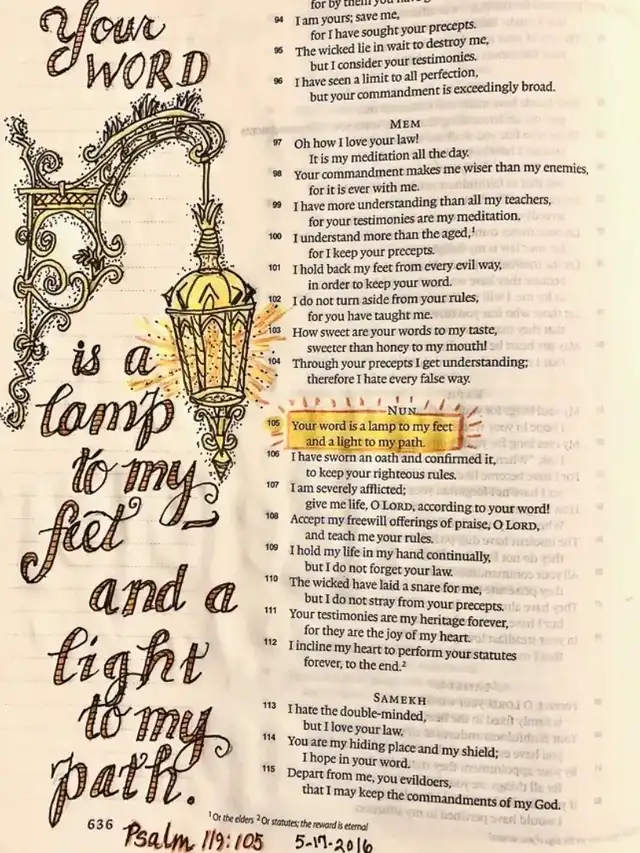 Your
WORD
is a
lamp
to my
feet
and a
light
to my
path.
94 I am yours; save me,
for I have sought your precepts.
95 The wicked lie in wait to destroy me,
but I consider your testimonies.
96 I have seen a limit to all perfection,
but your commandment is exceedingly broad.
MEM
97 Oh how I love your law!
It is my meditation all the day.
98 Your commandment makes me wiser than my enemies,
for it is ever with me.
99 I have more understanding than all my teachers,
for your testimonies are my meditation.
100 I understand more than the aged,1
for I keep your precepts.
101 I hold back my feet from every evil way,
in order to keep your word.
102 I do not turn aside from your rules,
for you have taught me.
103 How sweet are your words to my taste,
sweeter than honey to my mouth!
104 Through your precepts I get understanding;
therefore I hate every false way.
NUN
105 Your word is a lamp to my feet
and a light to my path.
106 I have sworn an oath and confirmed it,
to keep your righteous rules.
107 I am severely afflicted;
give me life, O LORD, according to your word!
108 Accept my freewill offerings of praise, O LORD,
and teach me your rules.
109 I hold my life in my hand continually,
but I do not forget your law.
110 The wicked have laid a snare for me,
but I do not stray from your precepts.
111 Your testimonies are my heritage forever,
for they are the joy of my heart.
112 I incline my heart to perform your statutes
forever, to the end.2
SAMEKH
113 I hate the double-minded,
but I love your law.
114 You are my hiding place and my shield;
I hope in your word.
115 Depart from me, you evildoers,
that I may keep the commandments of my God.
1 Or the elders 2 Or statutes; the reward is eternal
636
Psalm 119:105 5-17-2016